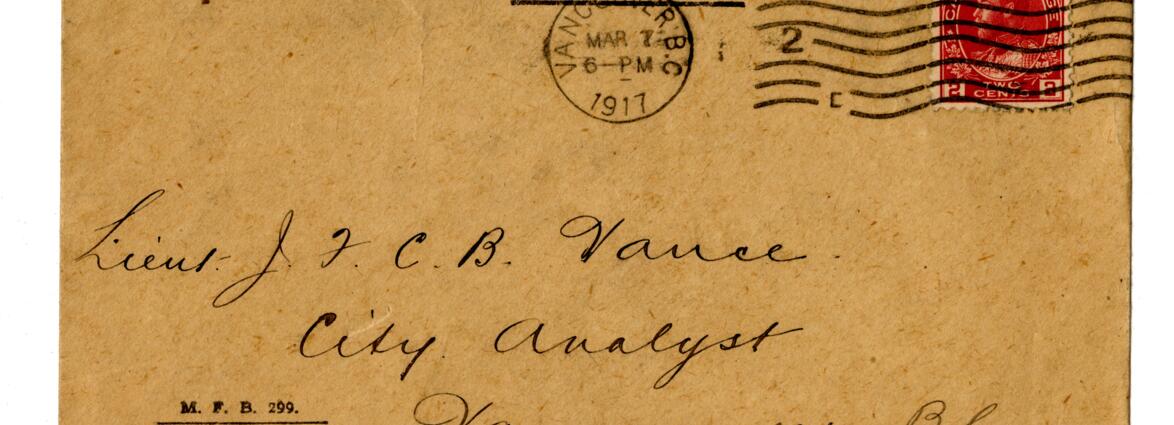 VANCOUVER, B.C.
MAR 7
6-PM
1917
2
E
TWO
2 CENTS 2
Lieut. J. F. C. B. Vance.
City Analyst
M. F. B. 299.